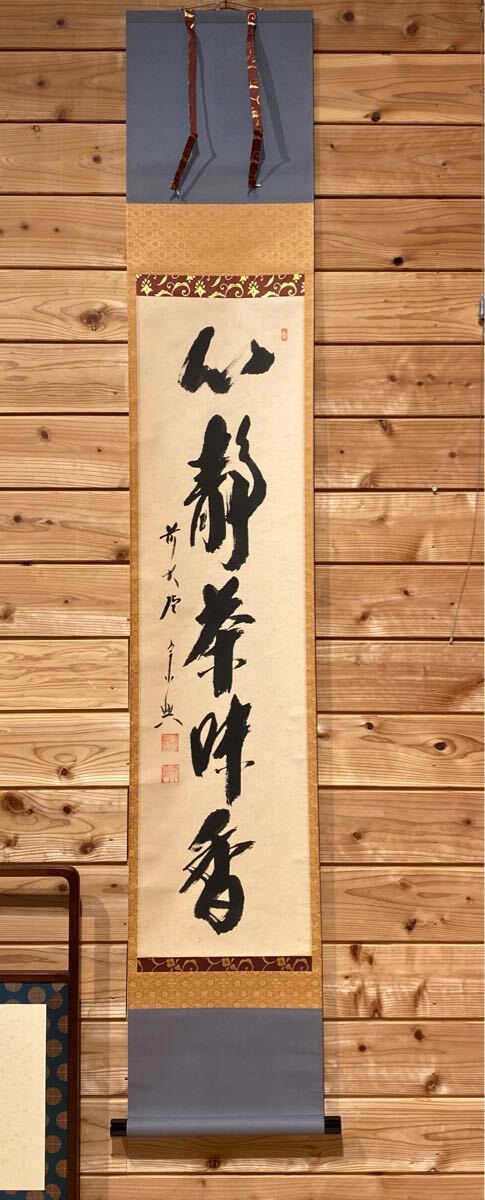 心静茶味香
前大徳